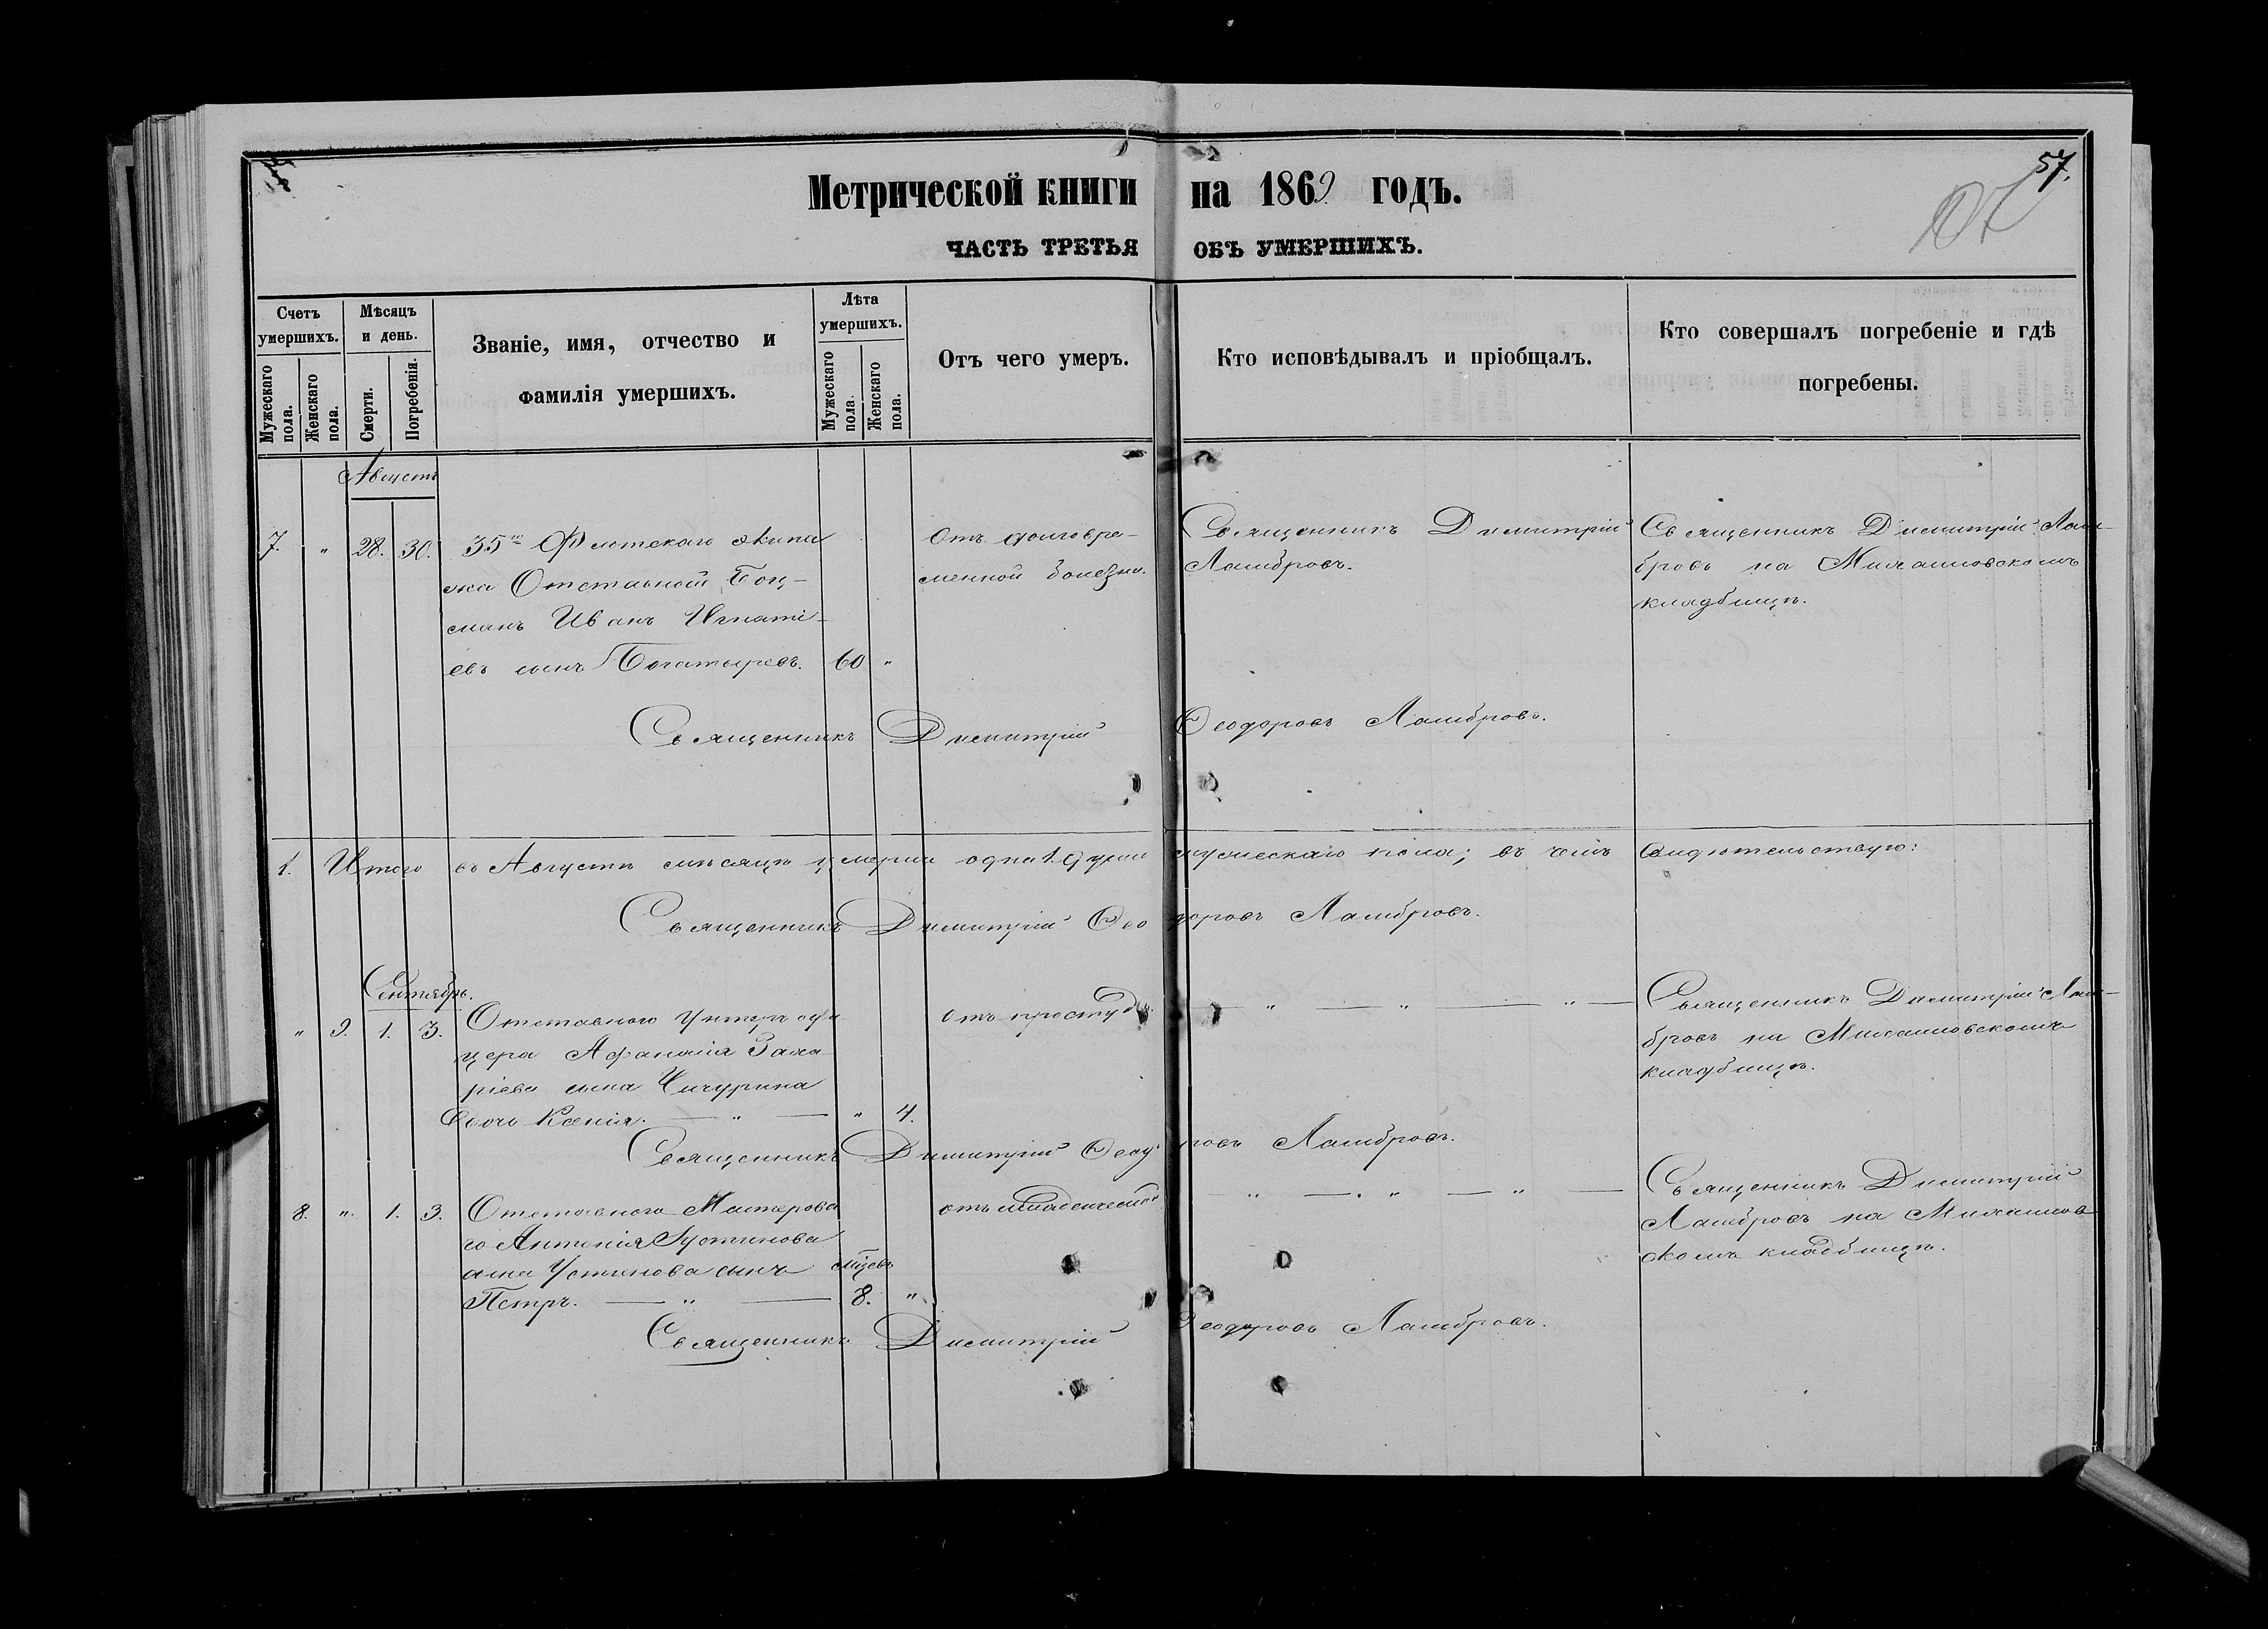 57.
Метрической книги на 1869 годъ.
ЧАСТЬ ТРЕТЬЯ ОБЪ УМЕРШИХЪ.
Счетъ умершихъ.
Мужескаго пола.
Женскаго пола.
Мѣсяцъ и день.
Смерти.
Погребенія.
Званіе, имя, отчество и
фамилія умершихъ.
Лѣта умершихъ.
Мужескаго пола.
Женскаго пола.
Отъ чего умеръ.
Кто исповѣдывалъ и пріобщалъ.
Кто совершалъ погребеніе и гдѣ
погребены.
Августъ
7. " 28. 30.
35го Флотскаго экипа
жа Отставной Боц-
манъ Иванъ Игнаті-
евъ сынъ Богатыревъ. 60 "
Отъ долговре-
менной болезни.
Священникъ Димитрій
Ламбровъ.
Священникъ Димитрій Лам-
бровъ на Михайловскомъ
кладбищѣ.
Священникъ Димитрій Ѳеодоровъ Ламбровъ.
1. Итого въ Августѣ мѣсяцѣ умерли одна 1. душа мужескаго пола; въ чемъ свидѣтельствую:
Священникъ Димитрій Ѳеодоровъ Ламбровъ.
Сентябрь.
" 9. 1. 3.
Отставного Унтеръ офи
цера Афанасія Заха
ріева сына Чичурина
дочь Ксенія. — " — " 4.
отъ простуды.
— " — " — " —
Священникъ Димитрій Лам-
бровъ на Михайловскомъ
кладбищѣ.
Священникъ Димитрій Ѳеодоровъ Ламбровъ.
8. " 1. 3.
Отставного Мастерова
го Антонія Іустинова
сына Устинова сынъ мѣцевъ
Петръ. — " — 8. "
отъ младенческой
— " — " — " —
Священникъ Димитрій
Ламбровъ на Михайлов
скомъ кладбищѣ.
Священникъ Димитрій Ѳеодоровъ Ламбровъ.